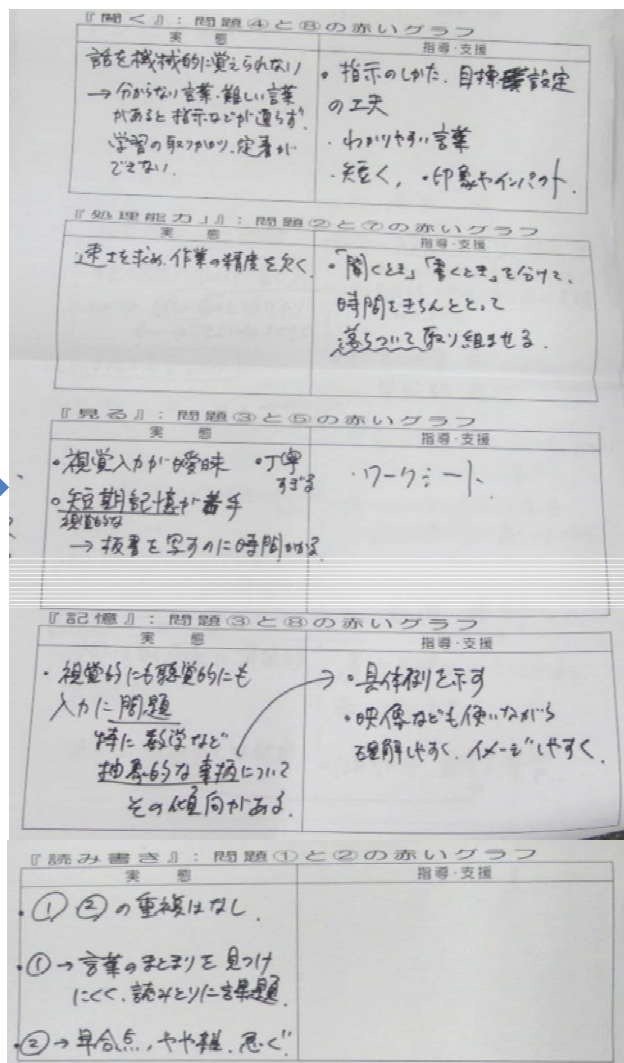 『聞く』：問題④と⑧の赤いグラフ
実　態
指導・支援
話を機械的に覚えられない
→ 分からない言葉・難しい言葉
があると指示などが通らず、
学習の取りかかり、定着が
できない.
・指示のしかた、目標設定
の工夫
・わかりやすい言葉
・短く，・印象やインパクト.
『処理能力』：問題②と⑦の赤いグラフ
実　態
指導・支援
速さを求め、作業の精度を欠く.
・「聞くとき」「書くとき」を分けて、
時間をきちんととって
落ちついて取り組ませる.
『見る』：問題③と⑤の赤いグラフ
実　態
指導・支援
・視覚入力が曖昧　・丁寧
すぎる
・短期記憶が苦手
視覚的な
→ 板書を写すのに時間かかる.
・ワークシート
『記憶』：問題③と⑧の赤いグラフ
実　態
指導・支援
・視覚的にも聴覚的にも
入力に問題
特に数学など
抽象的な事柄について
その傾向がある.
・具体例を示す
・映像なども使いながら
理解しやすく、イメージしやすく.
『読み書き』：問題①と②の赤いグラフ
実　態
指導・支援
・① ②の重複はなし.
・①→ 言葉のまとまりを見つけ
にくく、読みとりに課題.
・②→ 早合点，やや雑、急ぐ